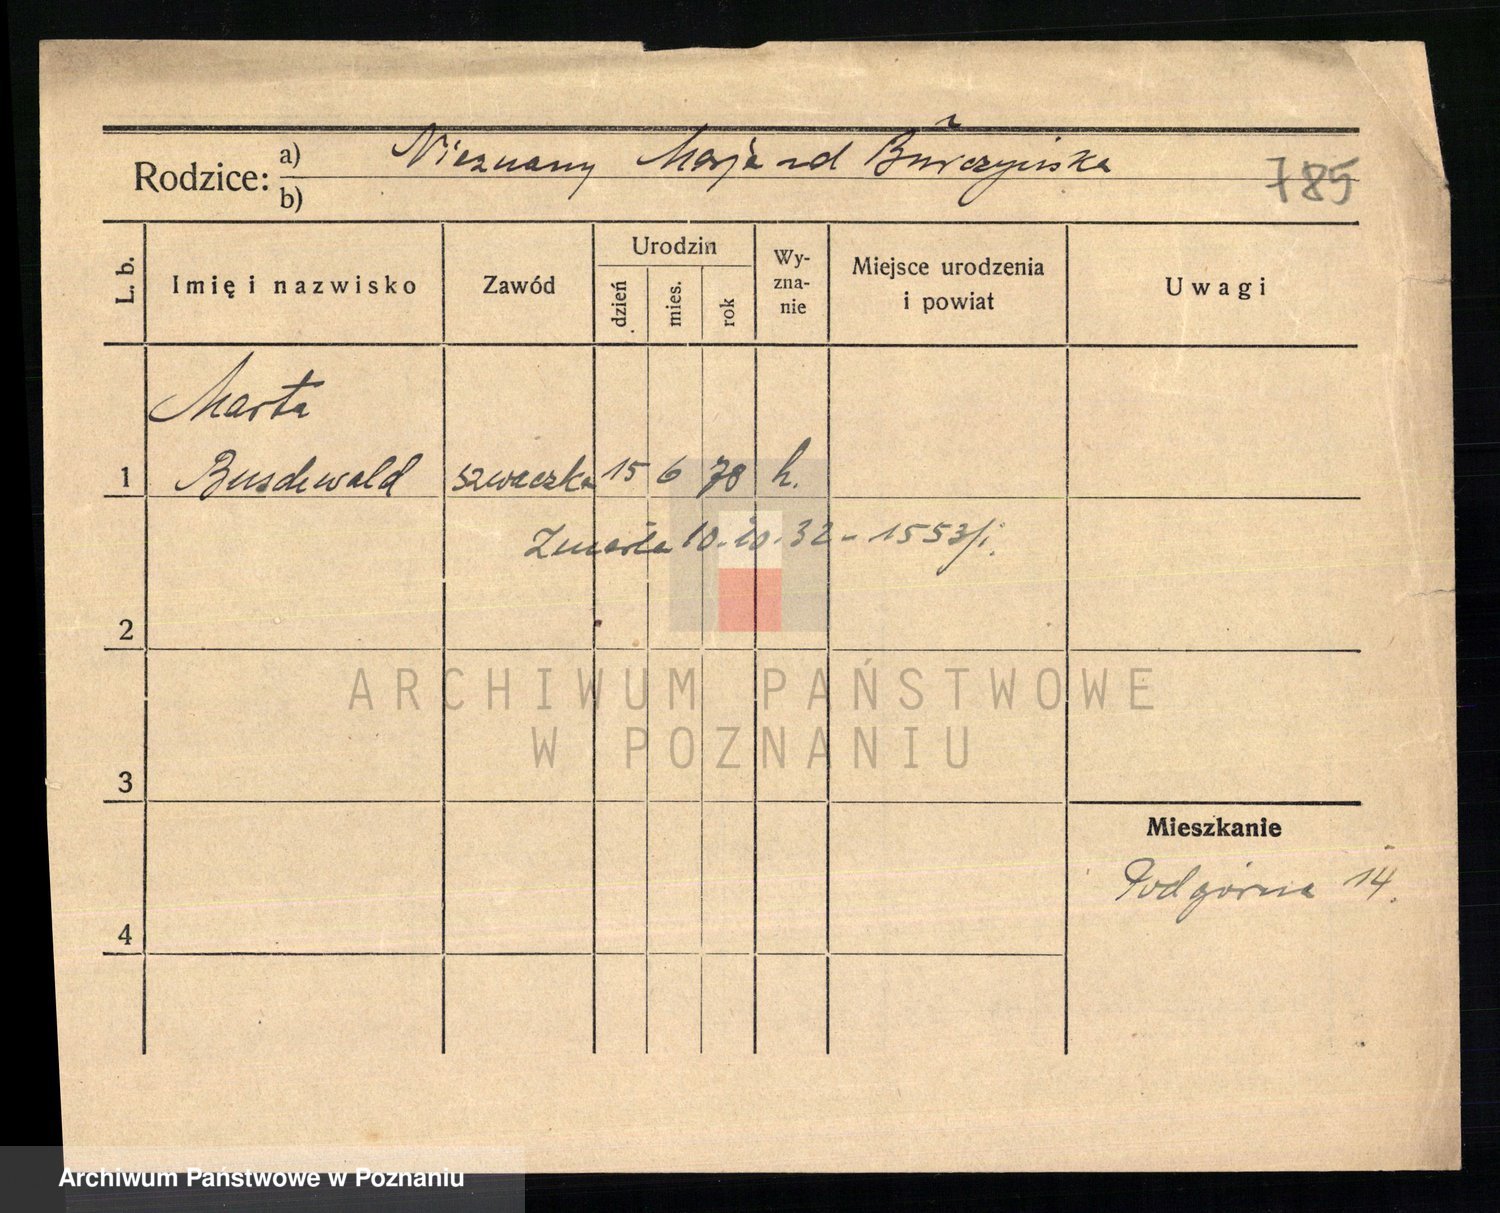 Rodzice: a) Nieznany Marja zd Burczyńska
b)
785
L. b. Imię i nazwisko Zawód Urodzin dzień mies. rok Wy-zna-nie Miejsce urodzenia i powiat Uwagi
Marta
1 Buschwald szwaczka 15 6 78 k.
Zmarła 10.10.32 - 1553/i.
2
ARCHIWUM PAŃSTWOWE
W POZNANIU
3
Mieszkanie
Podgórna 14.
4
Archiwum Państwowe w Poznaniu